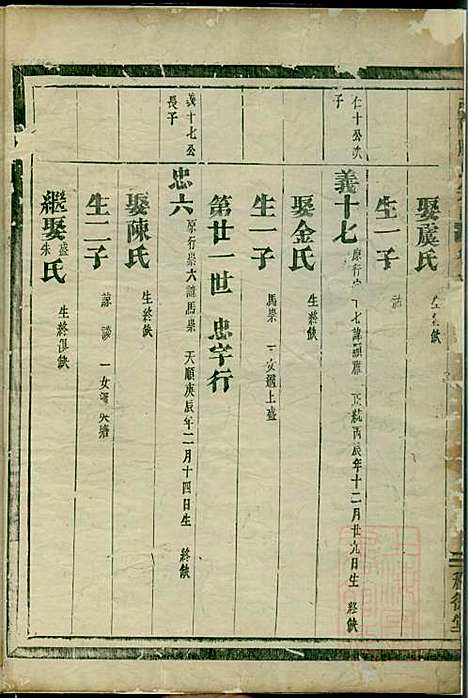 娶虞氏 生終缺
生一子
仁十公次子
義十七 原行 十七諱 正統丙辰年十二月廿九日生 終缺
娶金氏 生終缺
生一子 馬崇 一女適上盛
第廿一世 忠字行
義十七公長子
忠六 原行崇六諱馬崇 天順庚辰年二月十四日生 終缺
娶陳氏 生終缺
生二子 諒 談 一女適
繼娶盛朱氏 生終俱缺